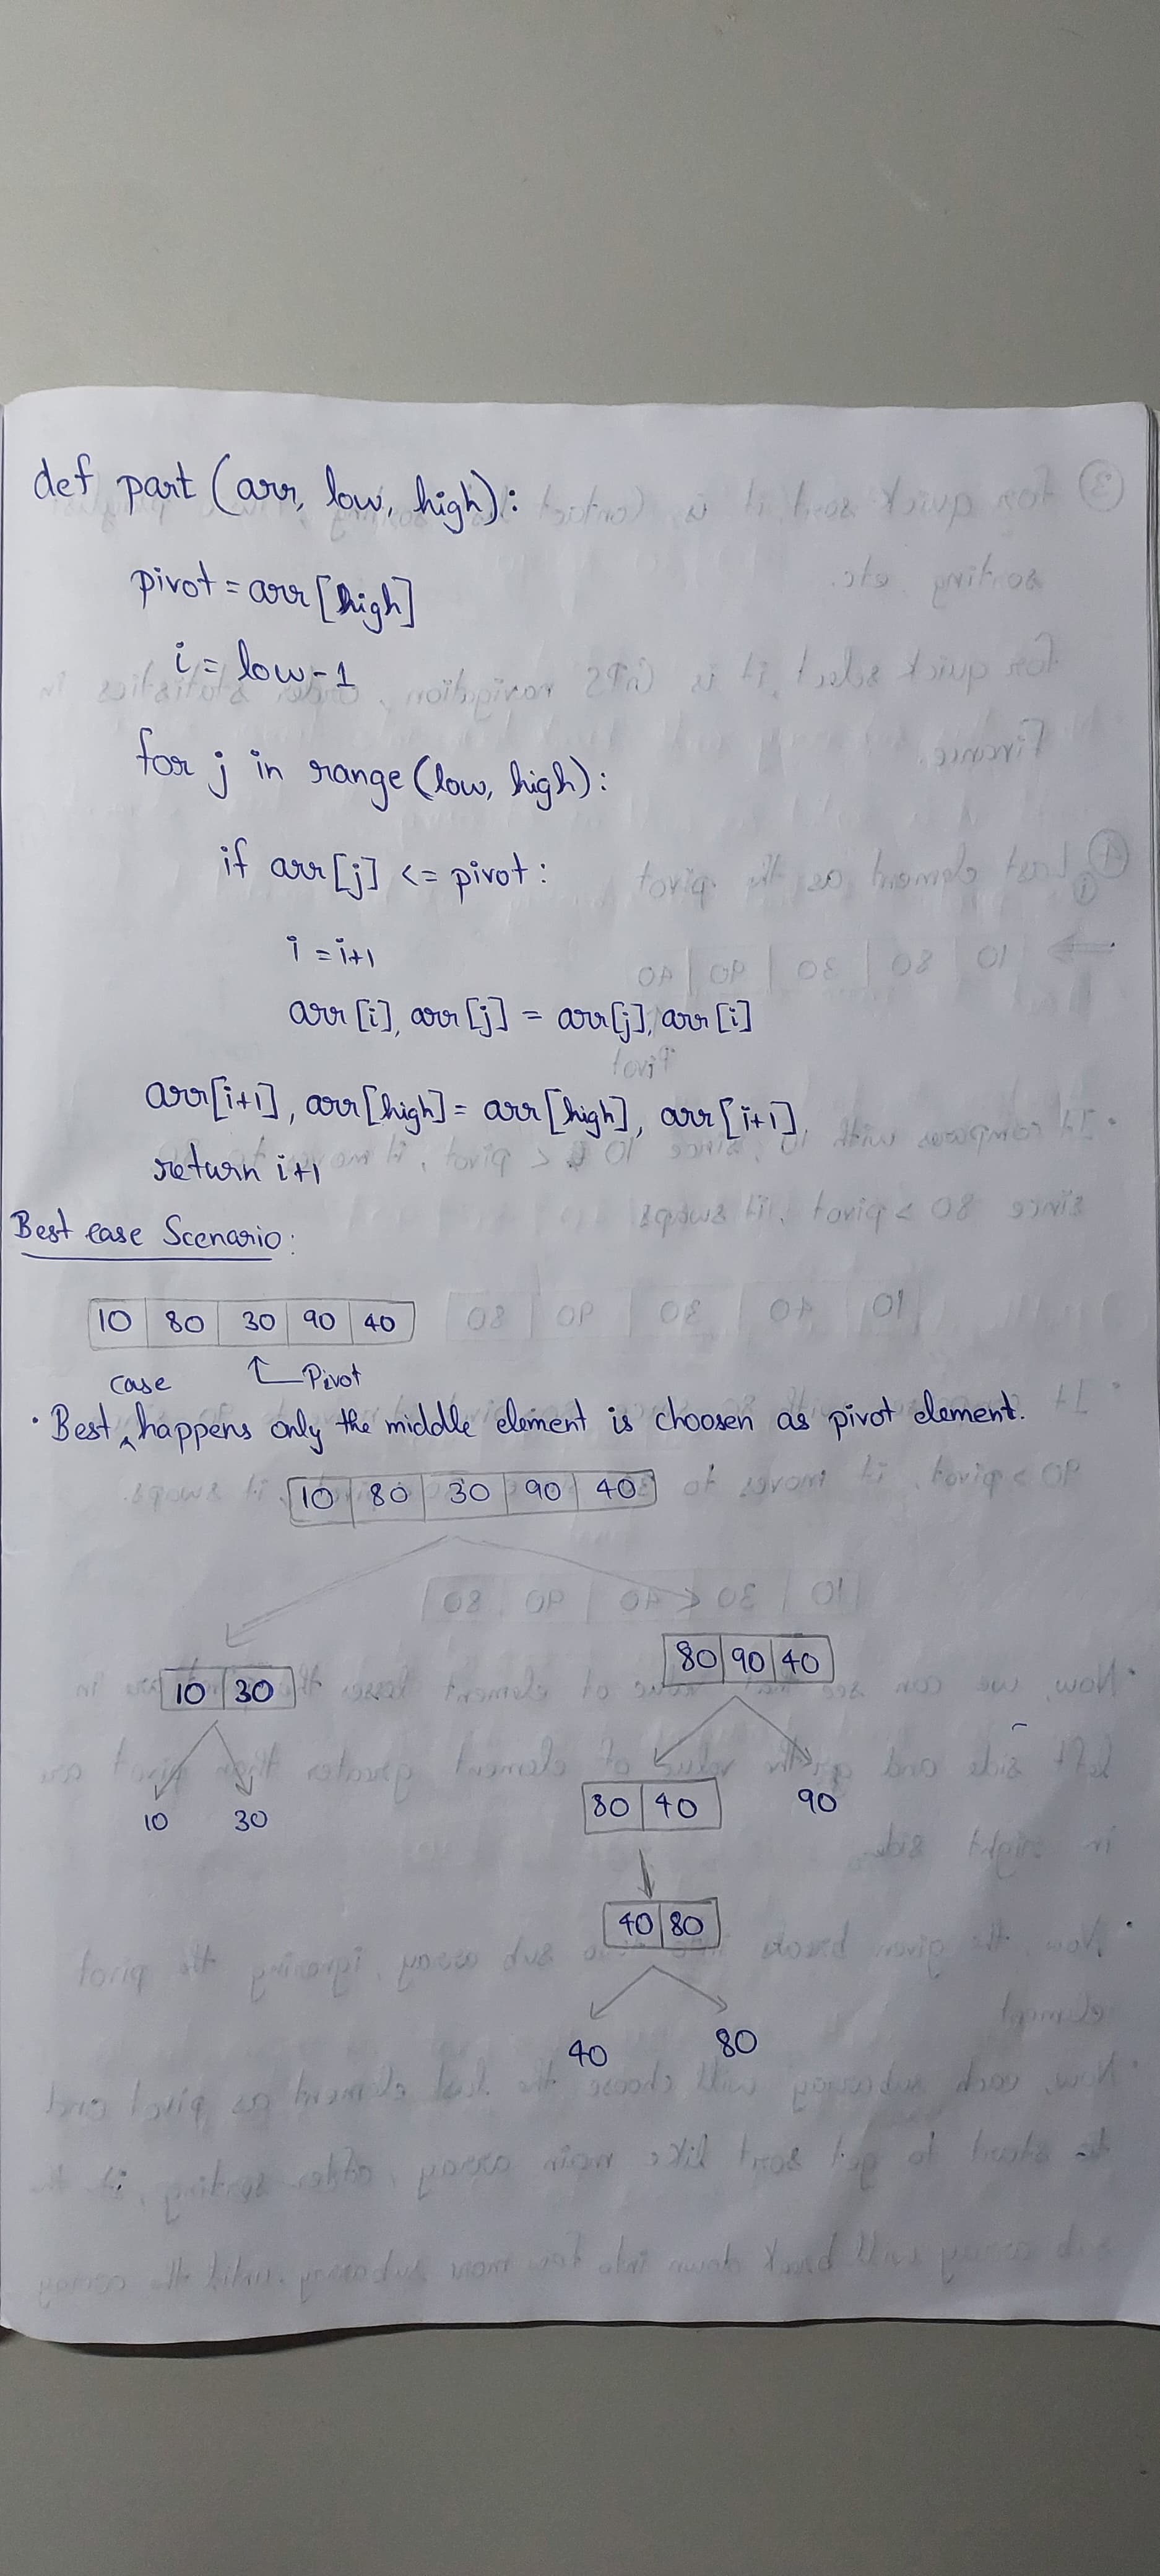 def part (arr, low, high):
pivot = arr [high]
i = low-1
for j in range (low, high):
if arr [j] <= pivot:
i = i+1
arr [i], arr [j] = arr [j], arr [i]
arr[i+1], arr [high] = arr [high], arr [i+1]
return i+1
Best case Scenario:
10 80 30 90 40
Pivot
case
· Best ^ happens only the middle element is choosen as pivot element.
10 80 30 90 40
80 90 40
10 30
80 40 90
10 30
40 80
40 80